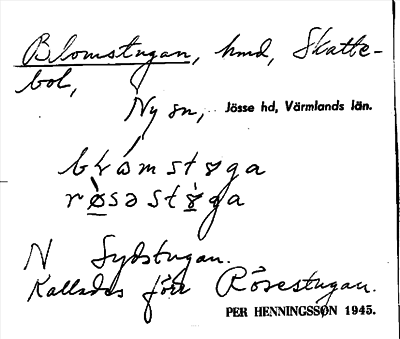 Blomstugan, hmd, Skatte-
bol,
Ny sn, Jösse hd, Värmlands län.
blωmstɷga
røsəstɷga
N Sydstugan.
Kallades förr Rösestugan.
PER HENNINGSSØN 1945.